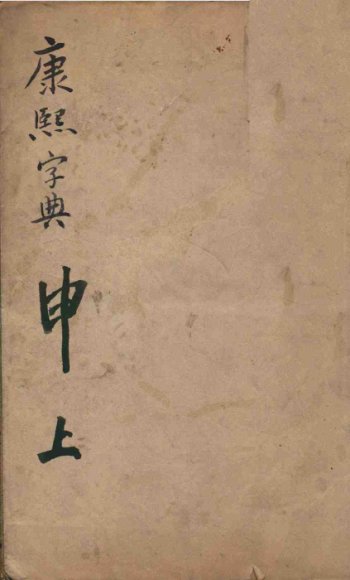 康熙字典 申 上